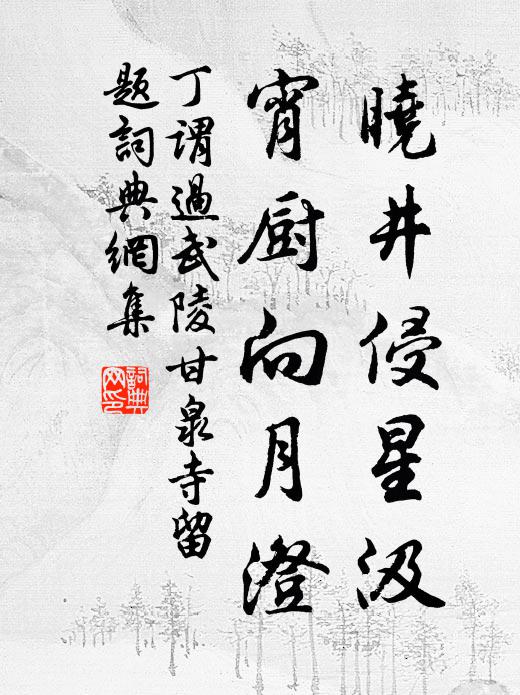 曉井侵星汲
宵厨向月澄
丁謂過武陵甘泉寺留
題詞典網集
詞典網印